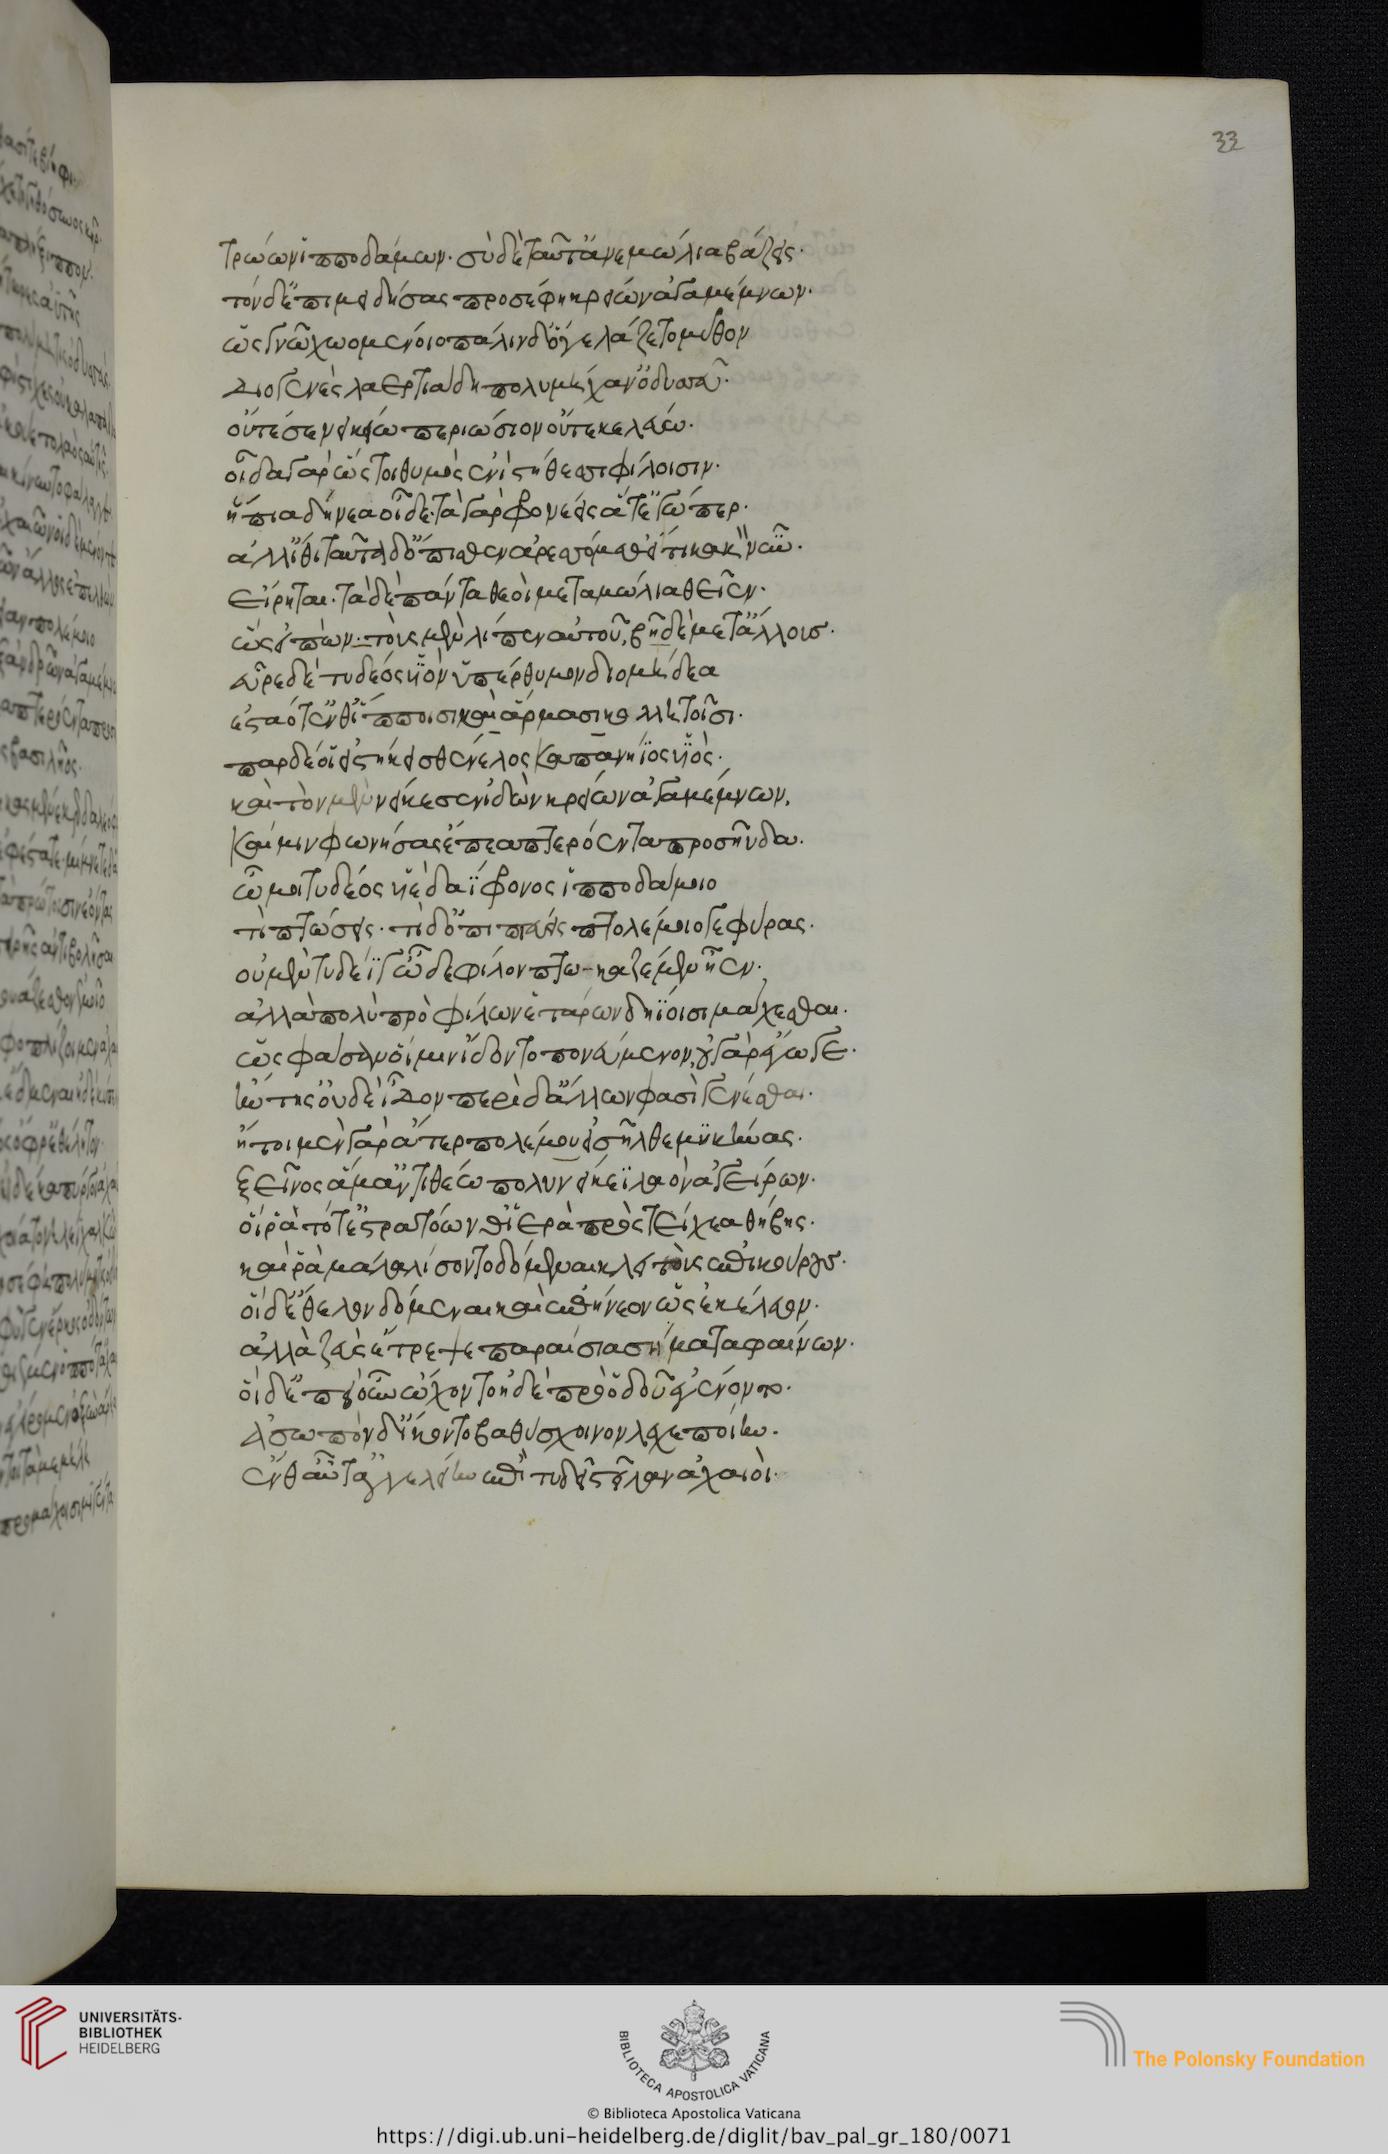 33
Τρώων ἱπποδάμων· σὺ δὲ ταῦτ' ἀνεμώλια βάζεις·
τὸν δ' ἐπιμειδήσας προσέφη κρείων ἀγαμέμνων·
ὡς γνῶ χωομένοιο πάλιν δ' ὅγε λάζετο μῦθον
Διογενὲς λαερτιάδη πολυμήχαν' ὀδυσσεῦ·
οὔτέ σε νεικείω περιώσιον οὔτε κελεύω·
οἶδα γὰρ ὥς τοι θυμὸς ἐνὶ στήθεσσι φίλοισιν·
ἤπια δήνεα οἶδε· τὰ γὰρ φρονέεις ἅ τ' ἐγώ περ·
ἀλλ' ἴθι ταῦτα δ' ὄπισθεν ἀρεσσόμεθ' εἴ τι κακὸν νῦν·
εἴρηται· τὰ δὲ πάντα θεοὶ μεταμώλια θεῖεν·
ὣς εἰπὼν· τοὺς μὲν λίπεν αὐτοῦ, βῆ δὲ μετ' ἄλλους·
εὗρε δὲ τυδέος υἱὸν ὑπέρθυμον διομήδεα
ἑσταότ' ἔν θ' ἵπποισι καὶ ἅρμασι κολλητοῖσι·
παρ δέ οἱ εἱστήκει σθένελος καπανήϊος υἱὸς·
καὶ τὸν μὲν νείκεσεν ἰδὼν κρείων ἀγαμέμνων,
καί μιν φωνήσας ἔπεα πτερόεντα προσηύδα·
ὤ μοι τυδέος υἱὲ δαΐφρονος ἱπποδάμοιο
τὶ πτώσεις· τὶ δ' ὀπιπτεύεις πτολέμοιο γεφύρας·
οὐ μὲν τυδέϊ γ' ὧδε φίλον πτωκαζέμεν ἦεν·
ἀλλὰ πολὺ πρὸ φίλων ἑτάρων δηΐοισι μάχεσθαι·
ὣς φάσαν οἵ μιν ἴδοντο πονεύμενον, οὐ γὰρ ἔγωγε·
ἤντησ' οὐδὲ ἴδον περὶ δ' ἄλλων φασὶ γενέσθαι·
ἤτοι μὲν γὰρ ἄτερ πολέμου εἰσῆλθε μυκήνας·
ξεῖνος ἅμ' ἀντιθέω πολυνείκεϊ λαὸν ἀγείρων·
οἵ ῥα τότ' ἐστρατόωνθ' ἱερὰ πρὸς τείχεα θήβης·
καὶ ῥα μάλα λίσσοντο δόμεναι κλειτοὺς ἐπικούρους·
οἱ δ' ἔθελον δόμεναι καὶ ἐπήνεον ὡς ἐκέλευον·
ἀλλὰ ζεὺς ἔτρεψε παραίσια σήματα φαίνων·
οἱ δ' ἐπεὶ οὖν ᾤχοντο ἠδὲ πρὸ ὁδοῦ ἐγένοντο·
Ἀσωπὸν δ' ἵκοντο βαθύσχοινον λεχεποίην·
ἔνθ' αὖτ' ἀγγελίην ἐπὶ τυδῆ στεῖλαν ἀχαιοὶ·
UNIVERSITÄTS-
BIBLIOTHEK
HEIDELBERG
BIBLIOTECA APOSTOLICA VATICANA
The Polonsky Foundation
© Biblioteca Apostolica Vaticana
https://digi.ub.uni-heidelberg.de/diglit/bav_pal_gr_180/0071